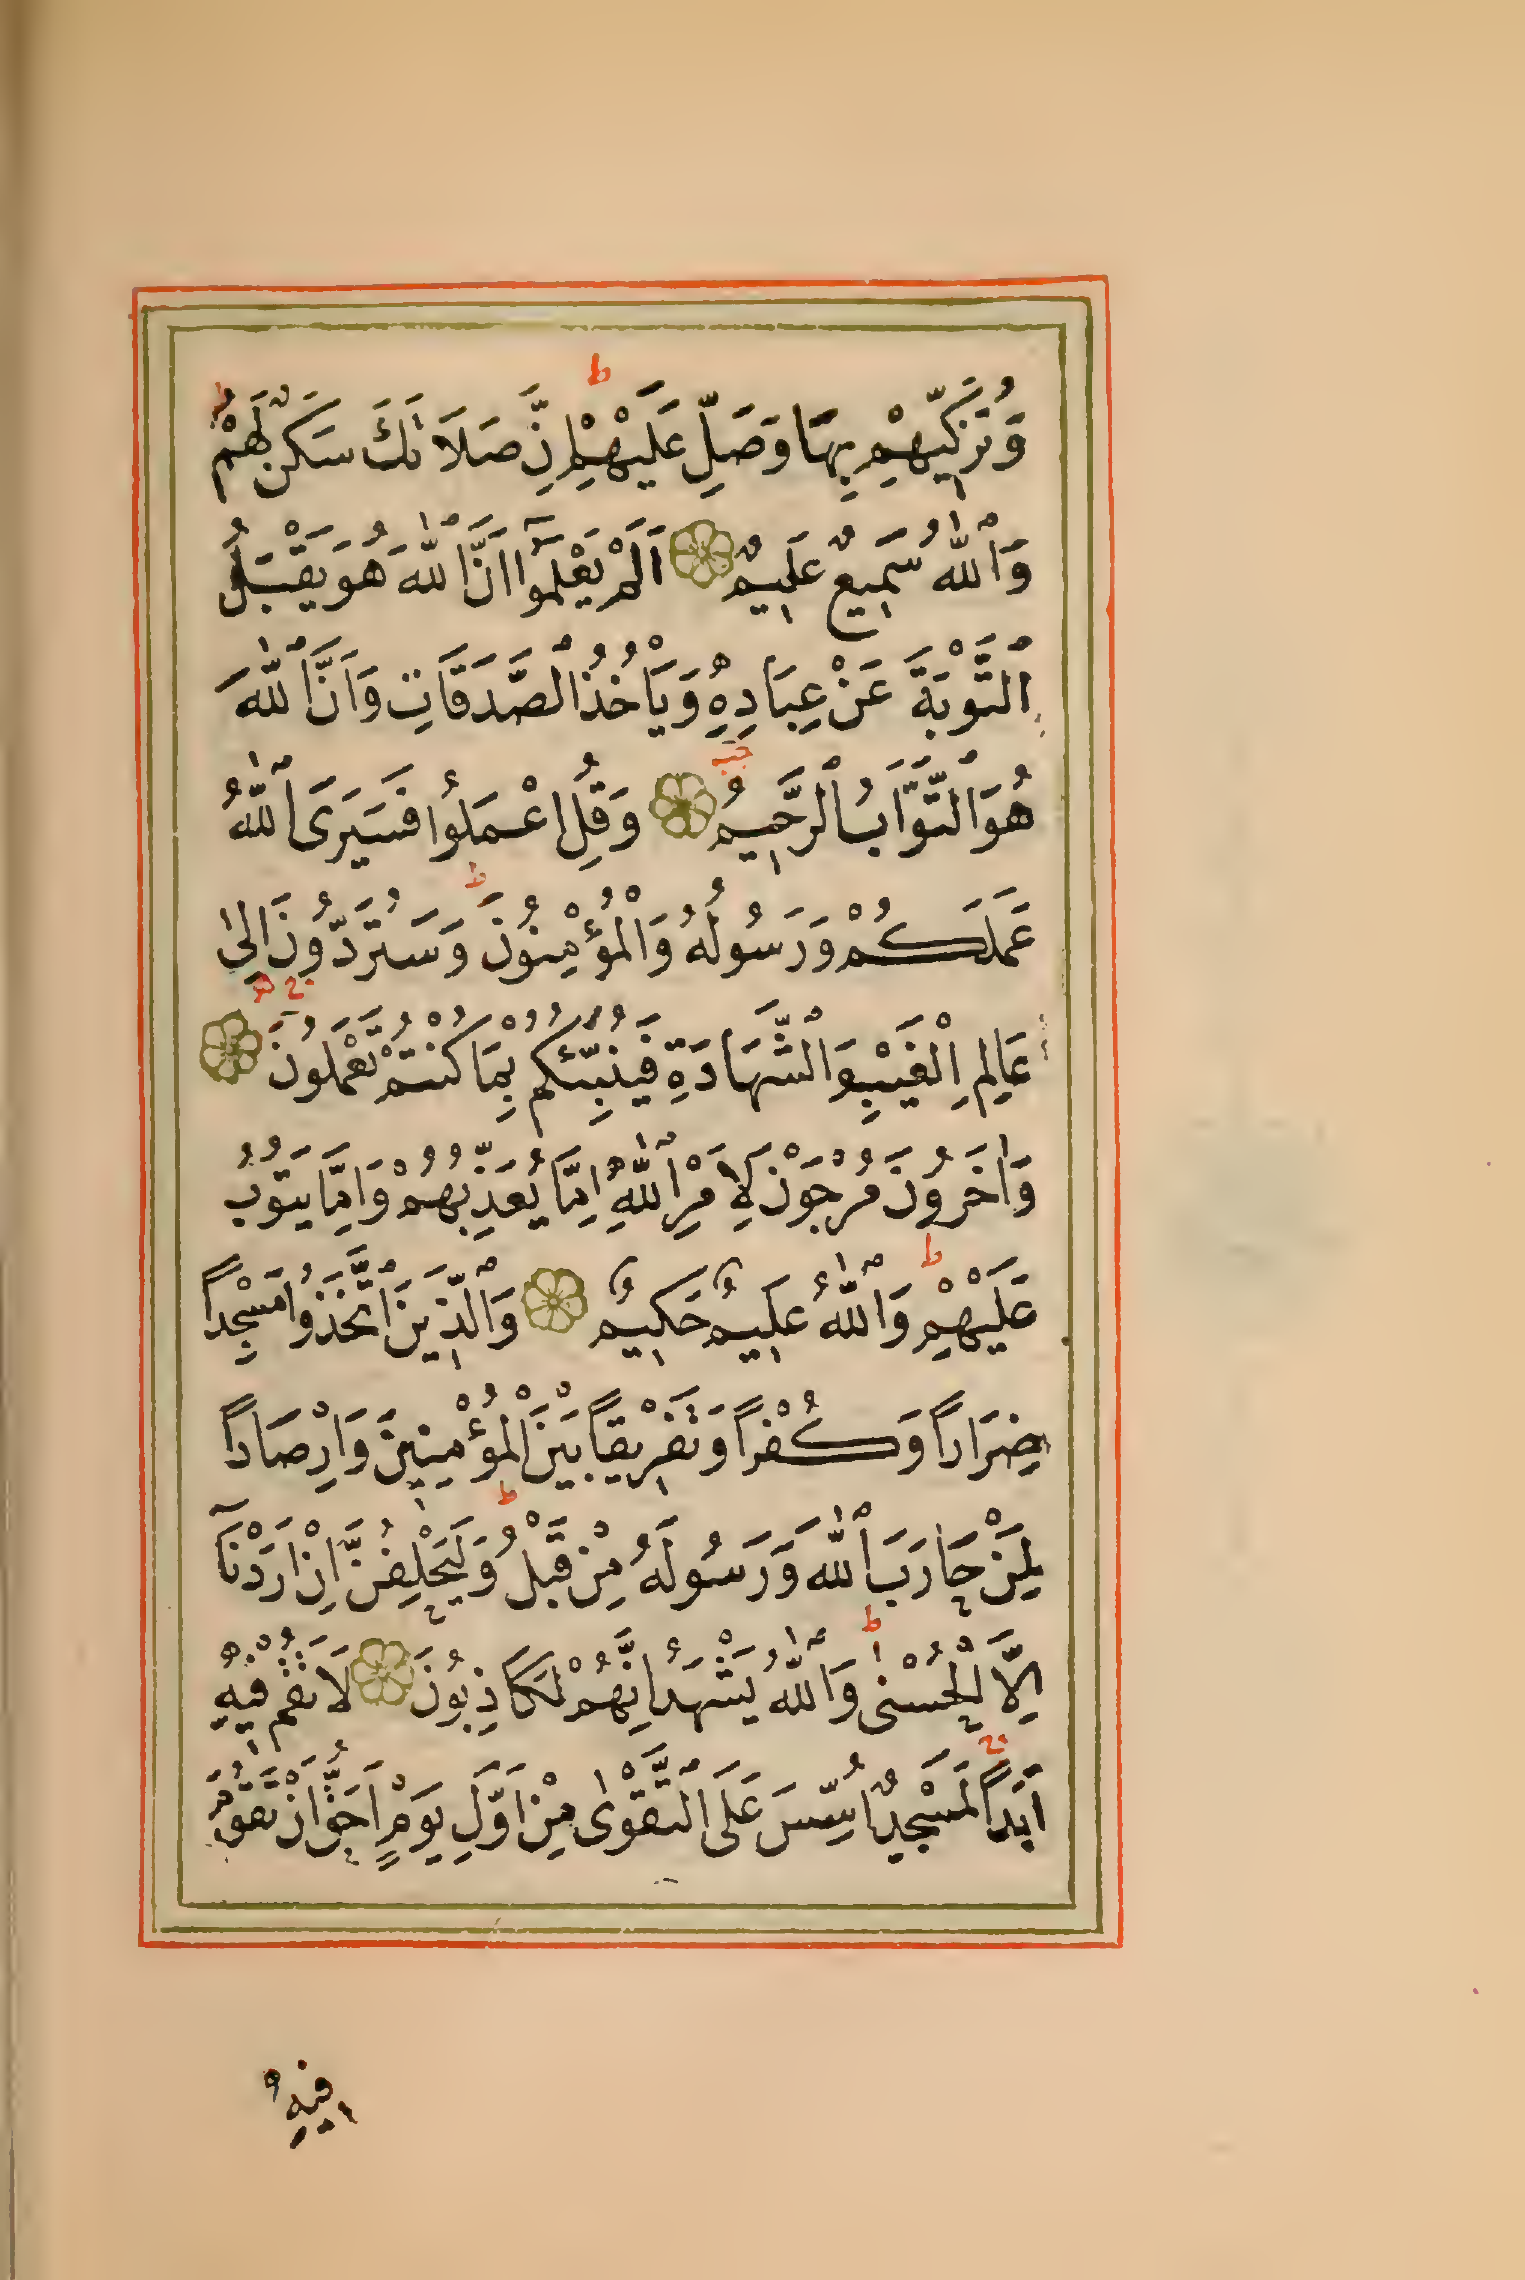 وَتُزَكِّيهِمْ بِهَا وَصَلِّ عَلَيْهِمْ اِنَّ صَلَاتَكَ سَكَنٌ لَهُمْ
وَاللّٰهُ سَمِيعٌ عَلِيمٌ اَلَمْ يَعْلَمُوٓا اَنَّ اللّٰهَ هُوَ يَقْبَلُ
التَّوْبَةَ عَنْ عِبَادِهِ وَيَأْخُذُ الصَّدَقَاتِ وَاَنَّ اللّٰهَ
هُوَ التَّوَّابُ الرَّحِيمُ وَقُلِ اعْمَلُوا فَسَيَرَى اللّٰهُ
عَمَلَكُمْ وَرَسُولُهُ وَالْمُؤْمِنُونَ وَسَتُرَدُّونَ اِلٰى
عَالِمِ الْغَيْبِ وَالشَّهَادَةِ فَيُنَبِّئُكُمْ بِمَا كُنْتُمْ تَعْمَلُونَ
وَاٰخَرُونَ مُرْجَوْنَ لِاَمْرِ اللّٰهِ اِمَّا يُعَذِّبُهُمْ وَاِمَّا يَتُوبُ
عَلَيْهِمْ وَاللّٰهُ عَلِيمٌ حَكِيمٌ وَالَّذِينَ اتَّخَذُوا مَسْجِدًا
ضِرَارًا وَكُفْرًا وَتَفْرِيقًا بَيْنَ الْمُؤْمِنِينَ وَاِرْصَادًا
لِمَنْ حَارَبَ اللّٰهَ وَرَسُولَهُ مِنْ قَبْلُ وَلَيَحْلِفُنَّ اِنْ اَرَدْنَٓا
اِلَّا الْحُسْنٰى وَاللّٰهُ يَشْهَدُ اِنَّهُمْ لَكَاذِبُونَ لَا تَقُمْ فِيهِ
اَبَدًا لَمَسْجِدٌ اُسِّسَ عَلَى التَّقْوٰى مِنْ اَوَّلِ يَوْمٍ اَحَقُّ اَنْ تَقُومَ
فِيهِ